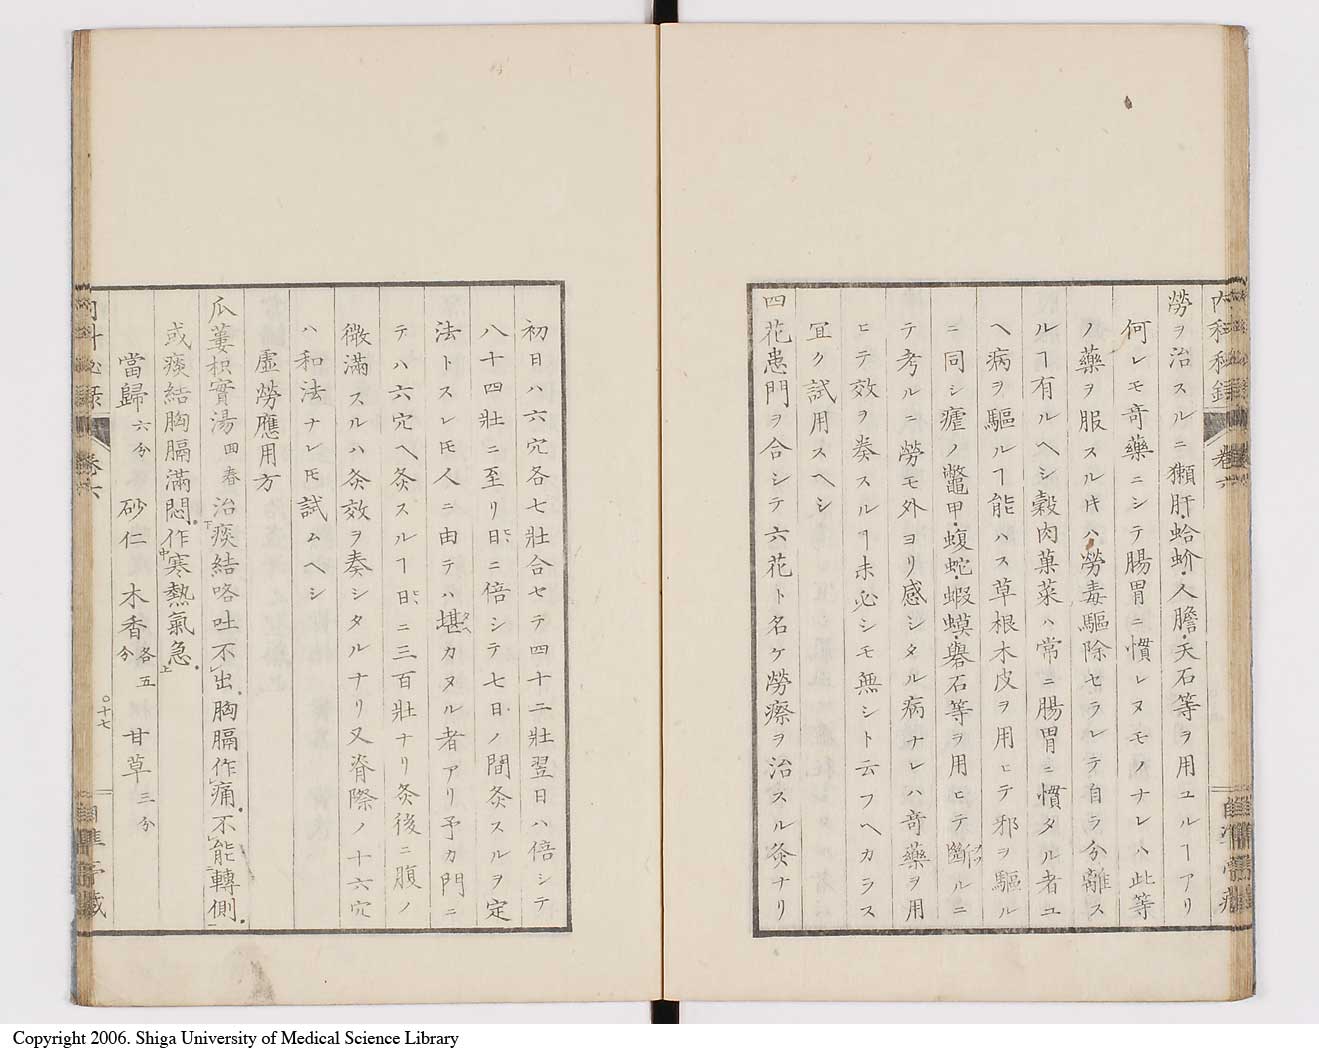 内科秘録 卷六
勞ヲ治スルニ獺肝・蛤蚧・人膽・天石等ヲ用ユルヿアリ
何レモ奇藥ニシテ腸胃ニ慣レヌモノナレハ此等
ノ藥ヲ服スル𪜈ハ勞毒驅除セラレテ自ラ分離ス
ルヿ有ルヘシ穀肉菓菜ハ常ニ腸胃ニ慣タル者ユ
ヘ病ヲ驅ルヿ能ハス草根木皮ヲ用ヒテ邪ヲ驅ル
ニ同シ瘧ノ鼈甲・蝮蛇・蝦蟇・礜石等ヲ用ヒテ斷ルニ
テ考ルニ勞モ外ヨリ感シタル病ナレハ奇藥ヲ用
ヒテ效ヲ奏スルヿ未必シモ無シト云フヘカラス
宜ク試用スヘシ
四花患門ヲ合シテ六花ト名ケ勞瘵ヲ治スル灸ナリ
初日ハ六穴各七壯合セテ四十二壯翌日ハ倍シテ
八十四壯ニ至リ日ニ倍シテ七日ノ間灸スルヲ定
法トスレ𪜈人ニ由テハ堪カヌル者アリ予カ門ニ
テハ六穴ヘ灸スルヿ日ニ三百壯ナリ灸後ニ腹ノ
微滿スルハ灸效ヲ奏シタルナリ又脊際ノ十六穴
ハ和法ナレ𪜈試ムヘシ
虛勞應用方
瓜蔞枳實湯 四春 治痰結咯吐不出胸膈作痛不能轉側
或痰結胸膈滿悶作寒熱氣急
當歸 六分 砂仁 木香 各五分 甘草 三分
卷六
〇十七